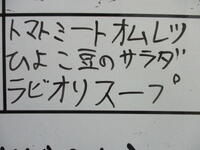 トマトミートオムレツ
ひよこ豆のサラダ
ラビオリスープ